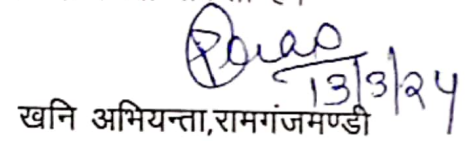 13/3/24
खनि अभियन्ता,रामगंजमण्डी